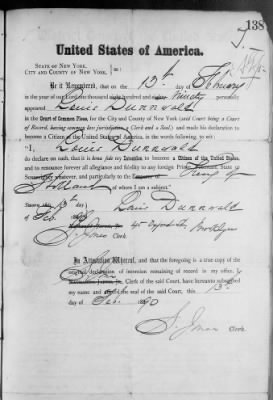 138
United States of America.
STATE OF NEW YORK,
CITY AND COUNTY OF NEW YORK, } ss:
Be it Remembered, that on the 13th day of February
in the year of our Lord one thousand eight hundred and Ninety personally
appeared Louis Dunnwalt
in the Court of Common Pleas, for the City and County of New York (said Court being a Court of
Record, having common law jurisdiction, a Clerk and a Seal) and made his declaration
to become a Citizen of the United States of America, in the words following, to wit:
"I, Louis Dunnwalt
do declare on oath, that it is bona fide my Intention to become a Citizen of the United States,
and to renounce forever all allegiance and fidelity to any foreign Prince, Potentate, State or
Sovereignty whatever, and particularly to the King of
Holland of whom I am a subject."
Sworn this 13th day of Louis Dunnwalt
Feb. 1890
Clerk Brooklyn
In Attestation Whereof, and that the foregoing is a true copy of the
original declaration of intention remaining of record in my office, I,
Clerk of the said Court, have hereunto subscribed
my name and affixed the seal of the said Court, this 13th
day of Feb. 1890
Clerk.